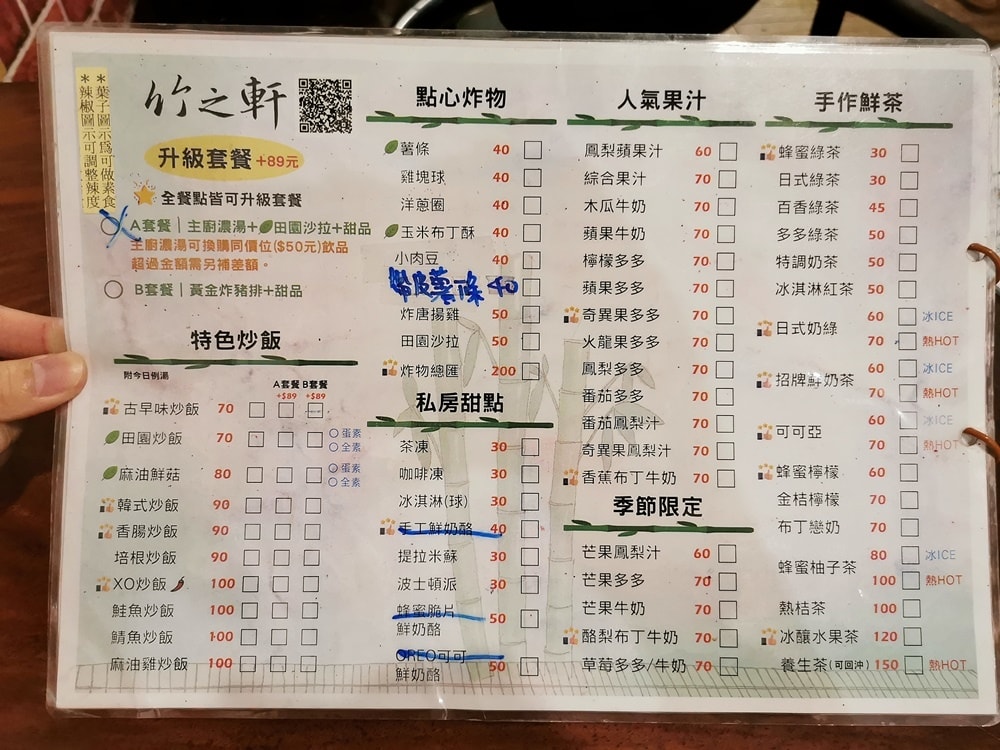 *葉子圖示為可做素食
*辣椒圖示可調整辣度
竹之軒
升級套餐 +89元
全餐點皆可升級套餐
A套餐｜主廚濃湯+田園沙拉+甜品
主廚濃湯可換購同價位($50元)飲品
超過金額需另補差額。
B套餐｜黃金炸豬排+甜品
特色炒飯
附今日例湯
A套餐 B套餐
+$89 +$89
古早味炒飯 70
田園炒飯 70 蛋素
全素
麻油鮮菇 80 蛋素
全素
韓式炒飯 90
香腸炒飯 90
培根炒飯 90
XO炒飯 100
鮭魚炒飯 100
鯖魚炒飯 100
麻油雞炒飯 100
點心炸物
薯條 40
雞塊球 40
洋蔥圈 40
玉米布丁酥 40
小肉豆 40
帶皮薯條 40
炸唐揚雞 50
田園沙拉 50
炸物總匯 200
私房甜點
茶凍 30
咖啡凍 30
冰淇淋(球) 30
手工鮮奶酪 40
提拉米蘇 30
波士頓派 30
蜂蜜脆片
鮮奶酪 50
OREO可可
鮮奶酪 50
人氣果汁
鳳梨蘋果汁 60
綜合果汁 70
木瓜牛奶 70
蘋果牛奶 70
檸檬多多 70
蘋果多多 70
奇異果多多 70
火龍果多多 70
鳳梨多多 70
番茄多多 70
番茄鳳梨汁 70
奇異果鳳梨汁 70
香蕉布丁牛奶 70
季節限定
芒果鳳梨汁 60
芒果多多 70
芒果牛奶 70
酪梨布丁牛奶 70
草莓多多/牛奶 70
手作鮮茶
蜂蜜綠茶 30
日式綠茶 30
百香綠茶 45
多多綠茶 50
特調奶茶 50
冰淇淋紅茶 50
日式奶綠 60 冰ICE
70 熱HOT
招牌鮮奶茶 60 冰ICE
70 熱HOT
可可亞 60 冰ICE
70 熱HOT
蜂蜜檸檬 60
金桔檸檬 70
布丁戀奶 70
蜂蜜柚子茶 80 冰ICE
100 熱HOT
熱桔茶 100
冰釀水果茶 120
養生茶(可回沖) 150 熱HOT